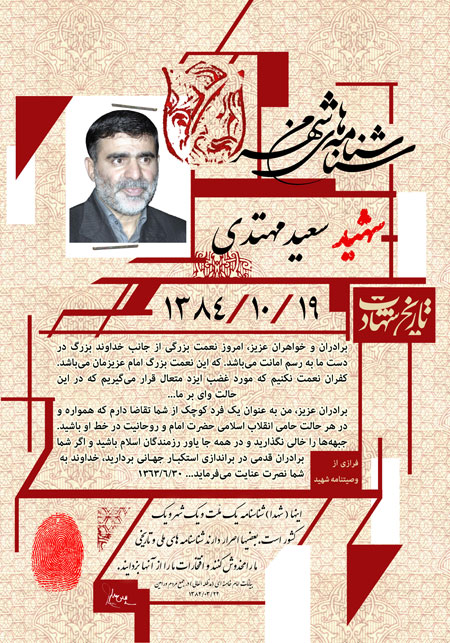 شناسنامه‌های شهر من
شهید سعید مهتدی
۱۳۸۴/۱۰/۱۹
تاریخ شهادت
برادران و خواهران عزیز، امروز نعمت بزرگی از جانب خداوند بزرگ در
دست ما به رسم امانت می‌باشد. که این نعمت بزرگ امام عزیزمان می‌باشد.
کفران نعمت نکنیم که مورد غضب ایزد متعال قرار می‌گیریم که در این
حالت وای بر ما...
برادران عزیز، من به عنوان یک فرد کوچک از شما تقاضا دارم که همواره و
در هر حالت حامی انقلاب اسلامی حضرت امام و روحانیت در خط او باشید.
جبهه‌ها را خالی نگذارید و در همه جا یاور رزمندگان اسلام باشید و اگر شما
برادران قدمی در براندازی استکبار جهانی بردارید، خداوند به
شما نصرت عنایت می‌فرماید... ۱۳۶۳/۶/۳۰
فرازی از
وصیتنامه شهید
اینها (شهدا) شناسنامه یک ملت و یک شهر و یک
کشور است. بعضیها اصرار دارند شناسنامه های ملی و تاریخی
ما را مخدوش کنند و افتخارات ما را از آنها بزدایند.
بیانات امام خامنه ای (مدظله العالی) در جمع مردم ورامین
۱۳۸۲/۰۳/۲۲